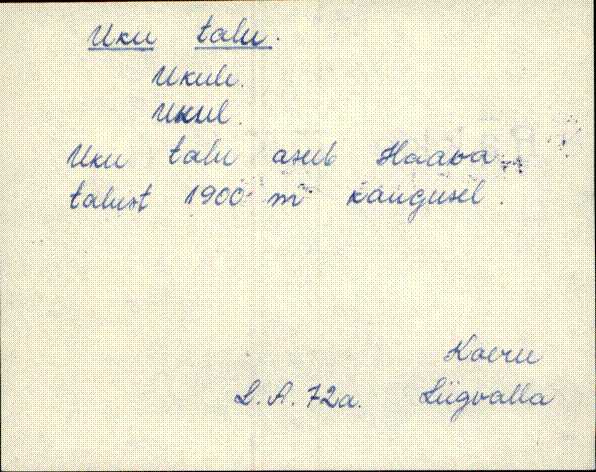 Uku talu.
Ukule.
Ukul.
Uku talu asub Haava
talust 1900 m kaugusel.
Koeru
L.A. 72a. Liigvalla